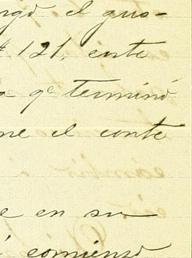 el quo-
121, corte
qe terminó
ne el corte
e en su
comienso